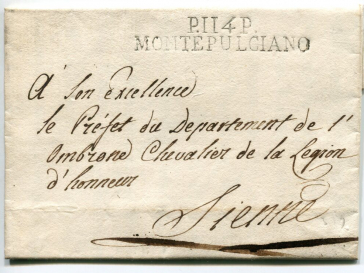 P.114P.
MONTEPULCIANO
A Son Excellence
le Préfet du Departement de l'
Ombrone Chevalier de la Legion
d'honneur
Sienne